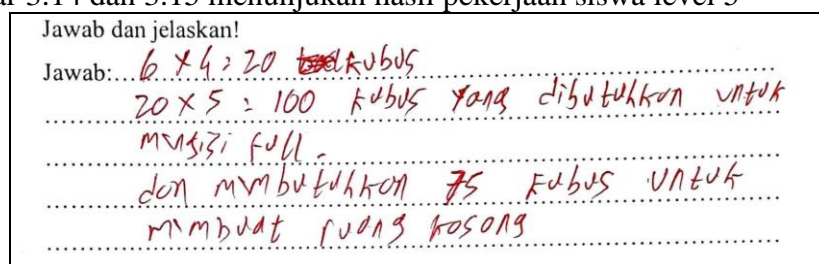 ar 3.14 dan 3.15 menunjukan hasil pekerjaan siswa level 3
Jawab dan jelaskan!
Jawab: 6 x 4 = 20 kubus
20 x 5 = 100 kubus yang dibutuhkan untuk
mengisi full.
dan membutuhkan 75 kubus untuk
membuat ruang kosong